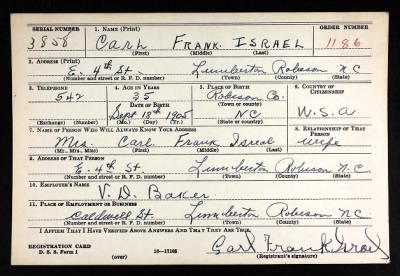 SERIAL NUMBER 1. NAME (Print) ORDER NUMBER
3858 Carl Frank Israel 1186
(First) (Middle) (Last)
2. ADDRESS (Print)
E. 4th St. Lumberton Robeson N C
(Number and street or R. F. D. number) (Town) (County) (State)
3. TELEPHONE 4. AGE IN YEARS 5. PLACE OF BIRTH 6. COUNTRY OF CITIZENSHIP
542 35 Robeson Co. U.S.A
DATE OF BIRTH (Town or county)
Sept 18th 1905 NC
(Exchange) (Number) (Mo.) (Day) (Yr.) (State or country)
7. NAME OF PERSON WHO WILL ALWAYS KNOW YOUR ADDRESS 8. RELATIONSHIP OF THAT PERSON
Mrs. Carl Frank Isreal wife
(Mr., Mrs., Miss) (First) (Middle) (Last)
9. ADDRESS OF THAT PERSON
E. 4th St Lumberton Robeson N.C.
(Number and street or R. F. D. number) (Town) (County) (State)
10. EMPLOYER'S NAME
V. D. Baker
11. PLACE OF EMPLOYMENT OR BUSINESS
Caldwell St. Lumberton Robeson NC
(Number and street or R. F. D. number) (Town) (County) (State)
I AFFIRM THAT I HAVE VERIFIED ABOVE ANSWERS AND THAT THEY ARE TRUE.
REGISTRATION CARD
D. S. S. Form 1 16—17105 Carl Frank Isreal
(over) (Registrant's signature)